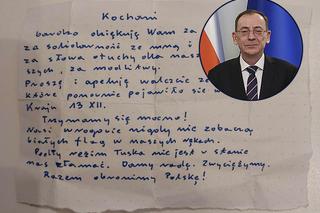 Kochani
bardzo dziękuję Wam za
za solidarność ze mną i
za słowa otuchy dla nasz
szych, za modlitwy.
Proszę i apeluję walczcie ze
które ponownie pojawiło się w
Kraju 13 XII.
Trzymamy się mocno!
Nasi wrogowie nigdy nie zobaczą
białych flag w naszych rękach.
Podły reżim Tuska nie jest w stanie
nas złamać. Damy radę. Zwyciężymy.
Razem obronimy Polskę!